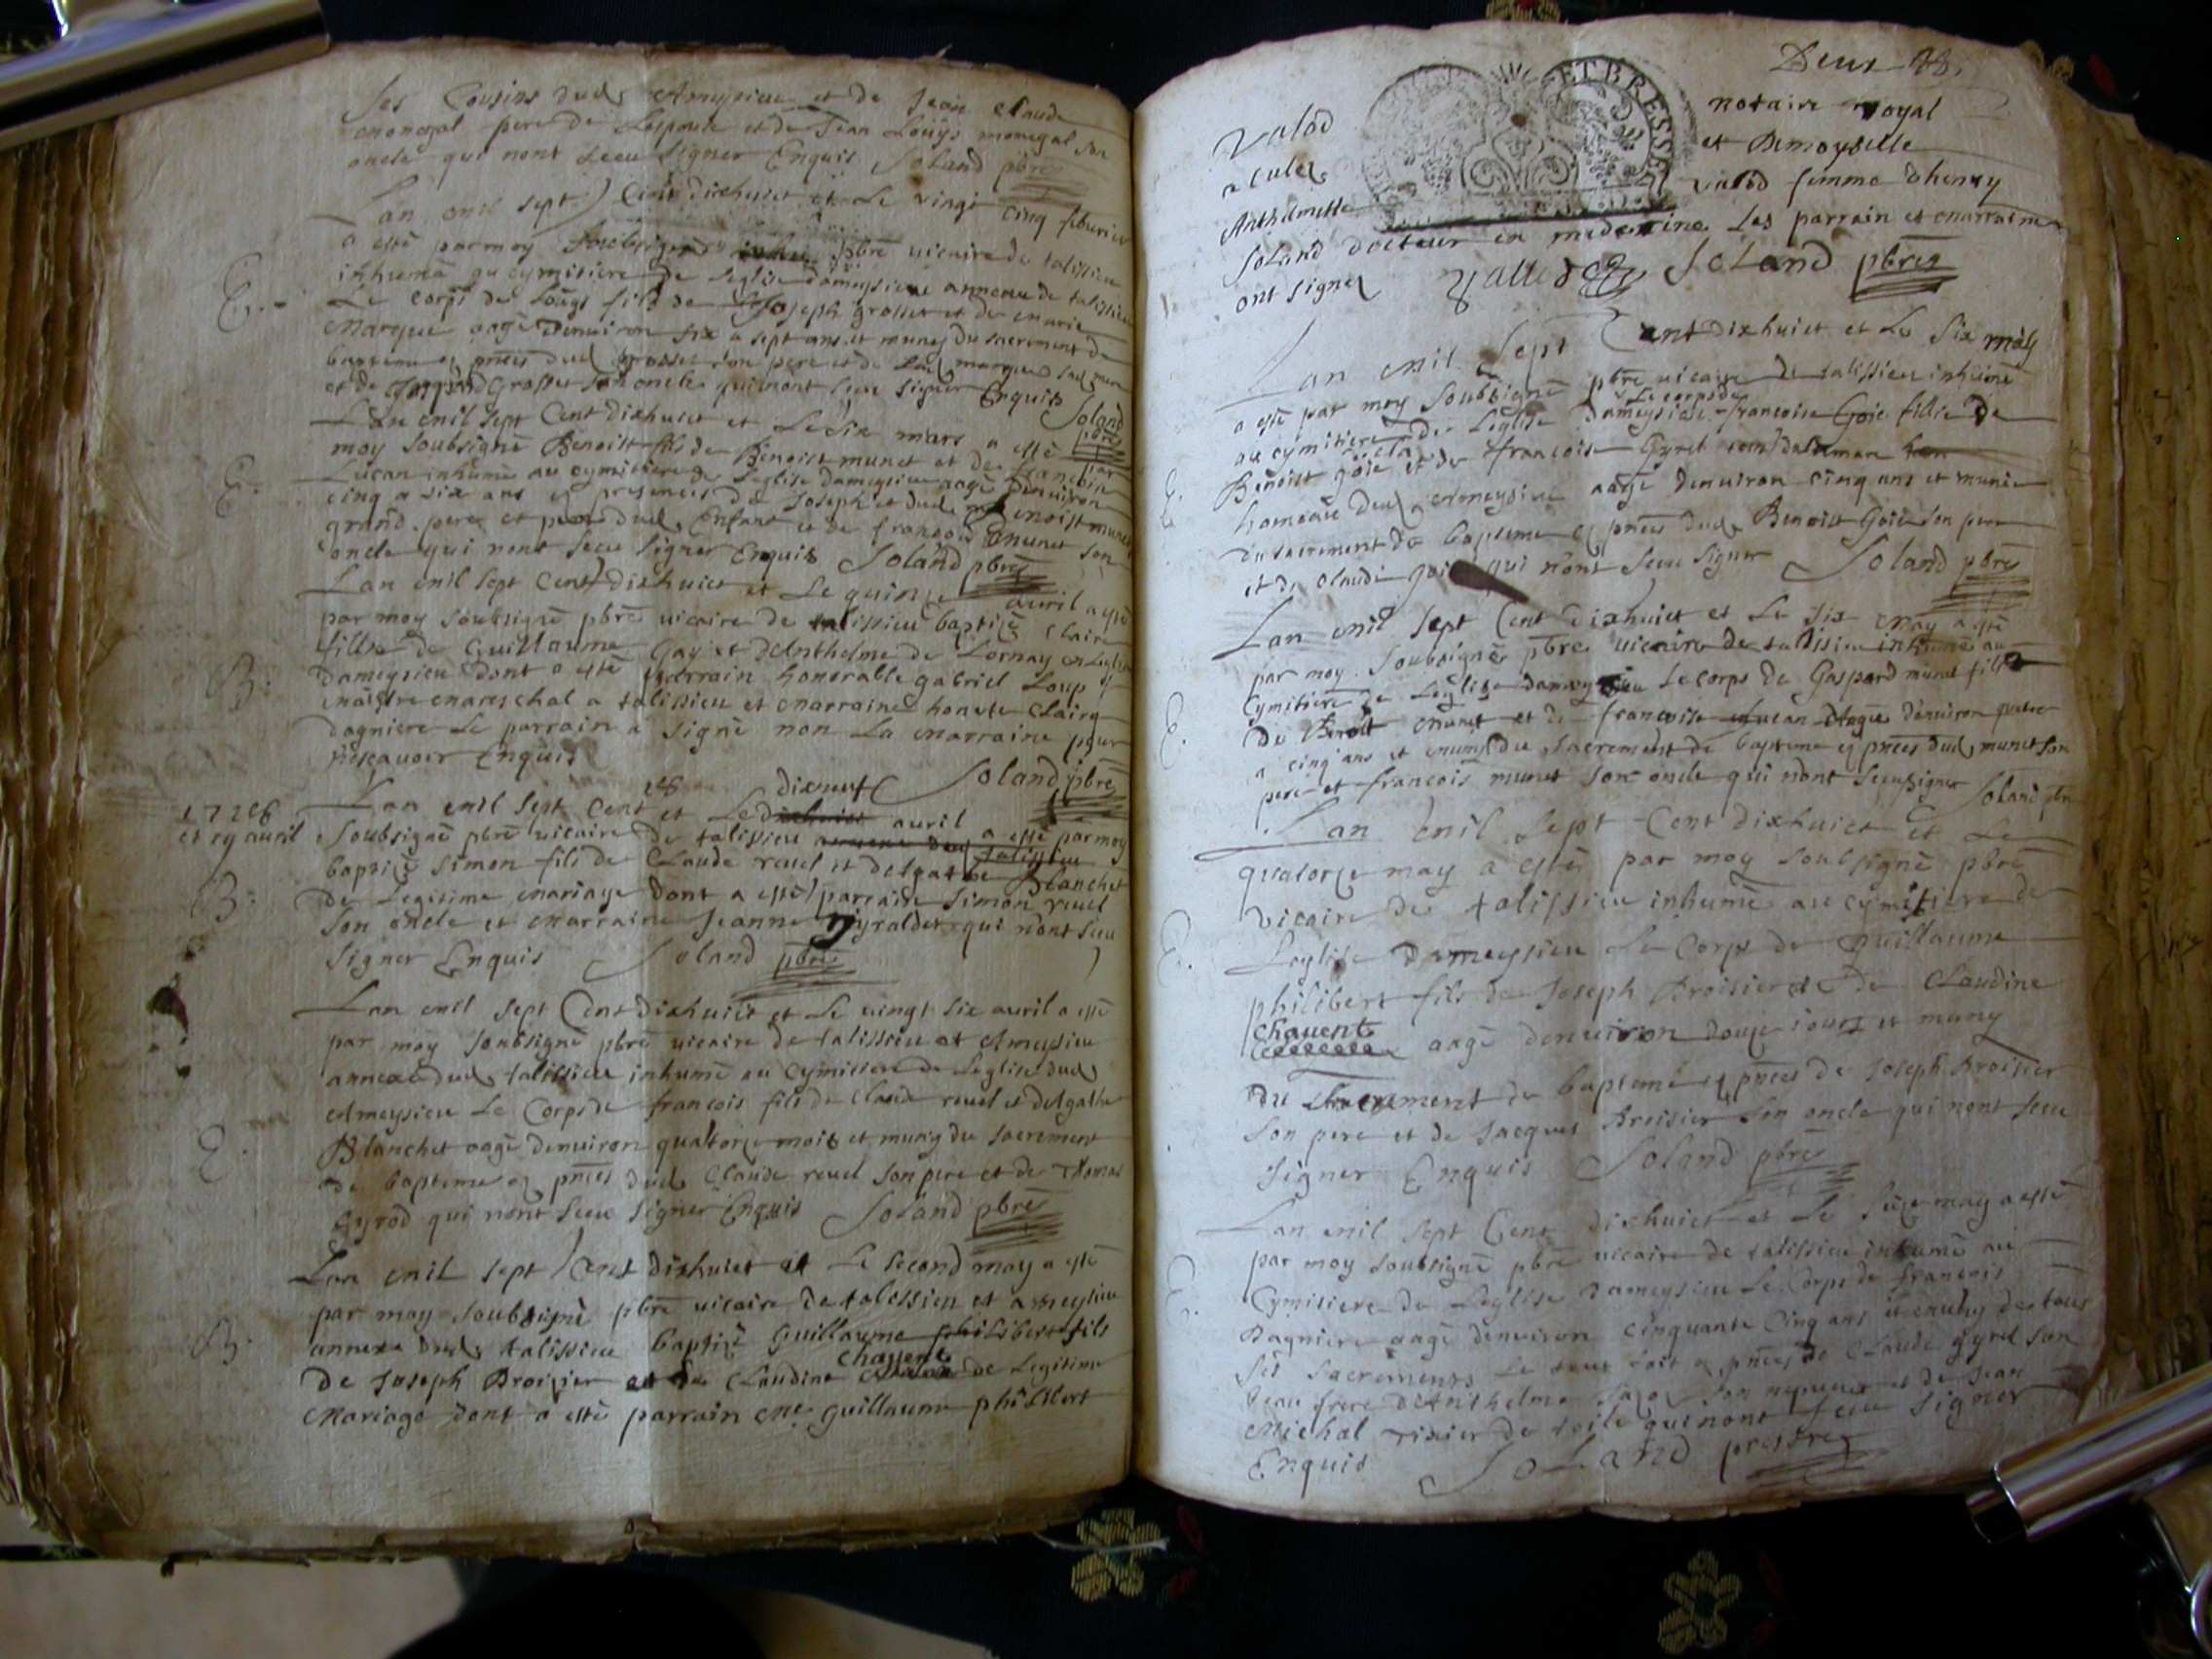 ses Cousins dud Ameysieu et de Jean Claude
monegal pere de Lespouse et de Jean Louys monegal son
oncle qui nont sceu signer Enquis Soland pbre
Lan mil sept Cent dixhuict et Le vingt cinq feburier
a esté par moy soubsigné pbre vicaire de talissieu
inhumé au cymitiere de Leglise dameysieu annexe de talissieu
Le corps de Louys fils de Joseph grosset et de marie
marque aagé denuiron six a sept ans et muny du sacrement de
bapteme et pnces dud grosset son pere et de
et de Grosset son oncle qui nont sceu signer Enquis
Soland
pbre
Lan mil sept Cent dixhuict et Le six mars a esté par
moy soubsigné Benoist fils de Benoist munet et de francoise
Lucan inhumé au cymitiere de Leglise dameysieu aagé denuiron
cinq a six ans et presences de Joseph et dud Benoist munet
grand pere et pere dud Enfant et de francois munet son
oncle qui nont sceu signer Enquis Soland pbre
Lan mil sept Cent dixhuict et Le quinze auril a esté
par moy soubsigné pbre vicaire de talissieu baptisé Claire
fille de Guillaume Gay et dAnthelme de Lornay
dameysieu dont a esté parrain honorable gabriel Loup
maistre mareschal a talissieu et marraine honeste Claire
dagniere Le parrain a signé non La marraine pour
ne scauoir Enquis
Soland pbre
1718
et 19 auril
Lan mil sept Cent 18 et Le dixneuf auril
a esté par moy
soubsigné pbre vicaire de talissieu
baptisé Simon fils de Claude reuel et delgathe Blanchet
de Legitime mariage dont a esté parrain Simon reuel
son oncle et marraine Jeanne gyraldet qui nont sceu
signer Enquis Soland pbre
Lan mil sept Cent dixhuict et Le vingt six auril a esté
par moy soubsigné pbre vicaire de talissieu et Ameysieu
annexe dud talissieu inhumé au cymitiere de Leglise dud
Ameysieu Le Corps de francois fils de Claude reuel et delgathe
Blanchet aagé denuiron quatorze mois et muny du sacrement
de bapteme et pnces dud Claude reuel son pere et de Thomas
Gyrod qui nont sceu signer Enquis Soland pbre
Lan mil sept Cent dixhuict et Le second may a esté
par moy soubsigné pbre vicaire de talissieu et ameysieu
annexe dud talissieu baptisé Guillaume philibert fils
de Joseph Broisier et de Claudine chauent de Legitime
mariage dont a esté parrain me guillaume philibert
Deux 18.
ET BRESSE
Valod notaire royal
a Culoz et Demoyselle
Anthelmette valod femme dhenry
Soland docteur en medecine Les parrain et marraine
ont signez Vallod Soland pbre
Lan mil sept Cent dixhuict et Le six may
a esté par moy soubsigné pbre vicaire de talissieu inhumé
au cymitiere de Leglise dameysieu Le corps de francoise Goie fille de
Benoist goie et de francoise Gyrel
hameau dud Ameysieu aagé denuiron cinq ans et munie
du sacrement de bapteme et pnces dud Benoist Goie son pere
et de Claude goie qui nont sceu signer Soland pbre
Lan mil sept Cent dixhuict et Le six may a esté
par moy soubsigné pbre vicaire de talissieu inhumé au
Cymitiere de Leglise dameysieu Le corps de Gaspard munet fils
de Benoit munet et de francoise Lucan Aagé denuiron quatre
a cinq ans et muny du sacrement de bapteme et pnces dud munet son
pere et francois munet son oncle qui nont sceu signer Soland pbre
Lan mil sept Cent dixhuict et Le
quatorze may a esté par moy soubsigné pbre
vicaire de talissieu inhumé au cymitiere de
Leglise dameysieu Le Corps de Guillaume
philibert fils de Joseph Broisier et De Claudine
chauent aagé denuiron douze iours et muny
du sacrement de bapteme et pnces de Joseph Broisier
son pere et de Jacques Broisier son oncle qui nont sceu
signer Enquis Soland pbre
Lan mil sept Cent dixhuict et Le seize may a esté
par moy soubsigné pbre vicaire de talissieu inhumé au
Cymitiere de Leglise dameysieu Le Corps de francois
Dagniere aagé denuiron cinquante Cinq ans et muny de tous
ses sacrements Le tout fait et pnces de Claude gyrel son
beau frere dAnthelme son nepueu et de Jean
Michal de qui nont sceu signer
Enquis Soland prestre